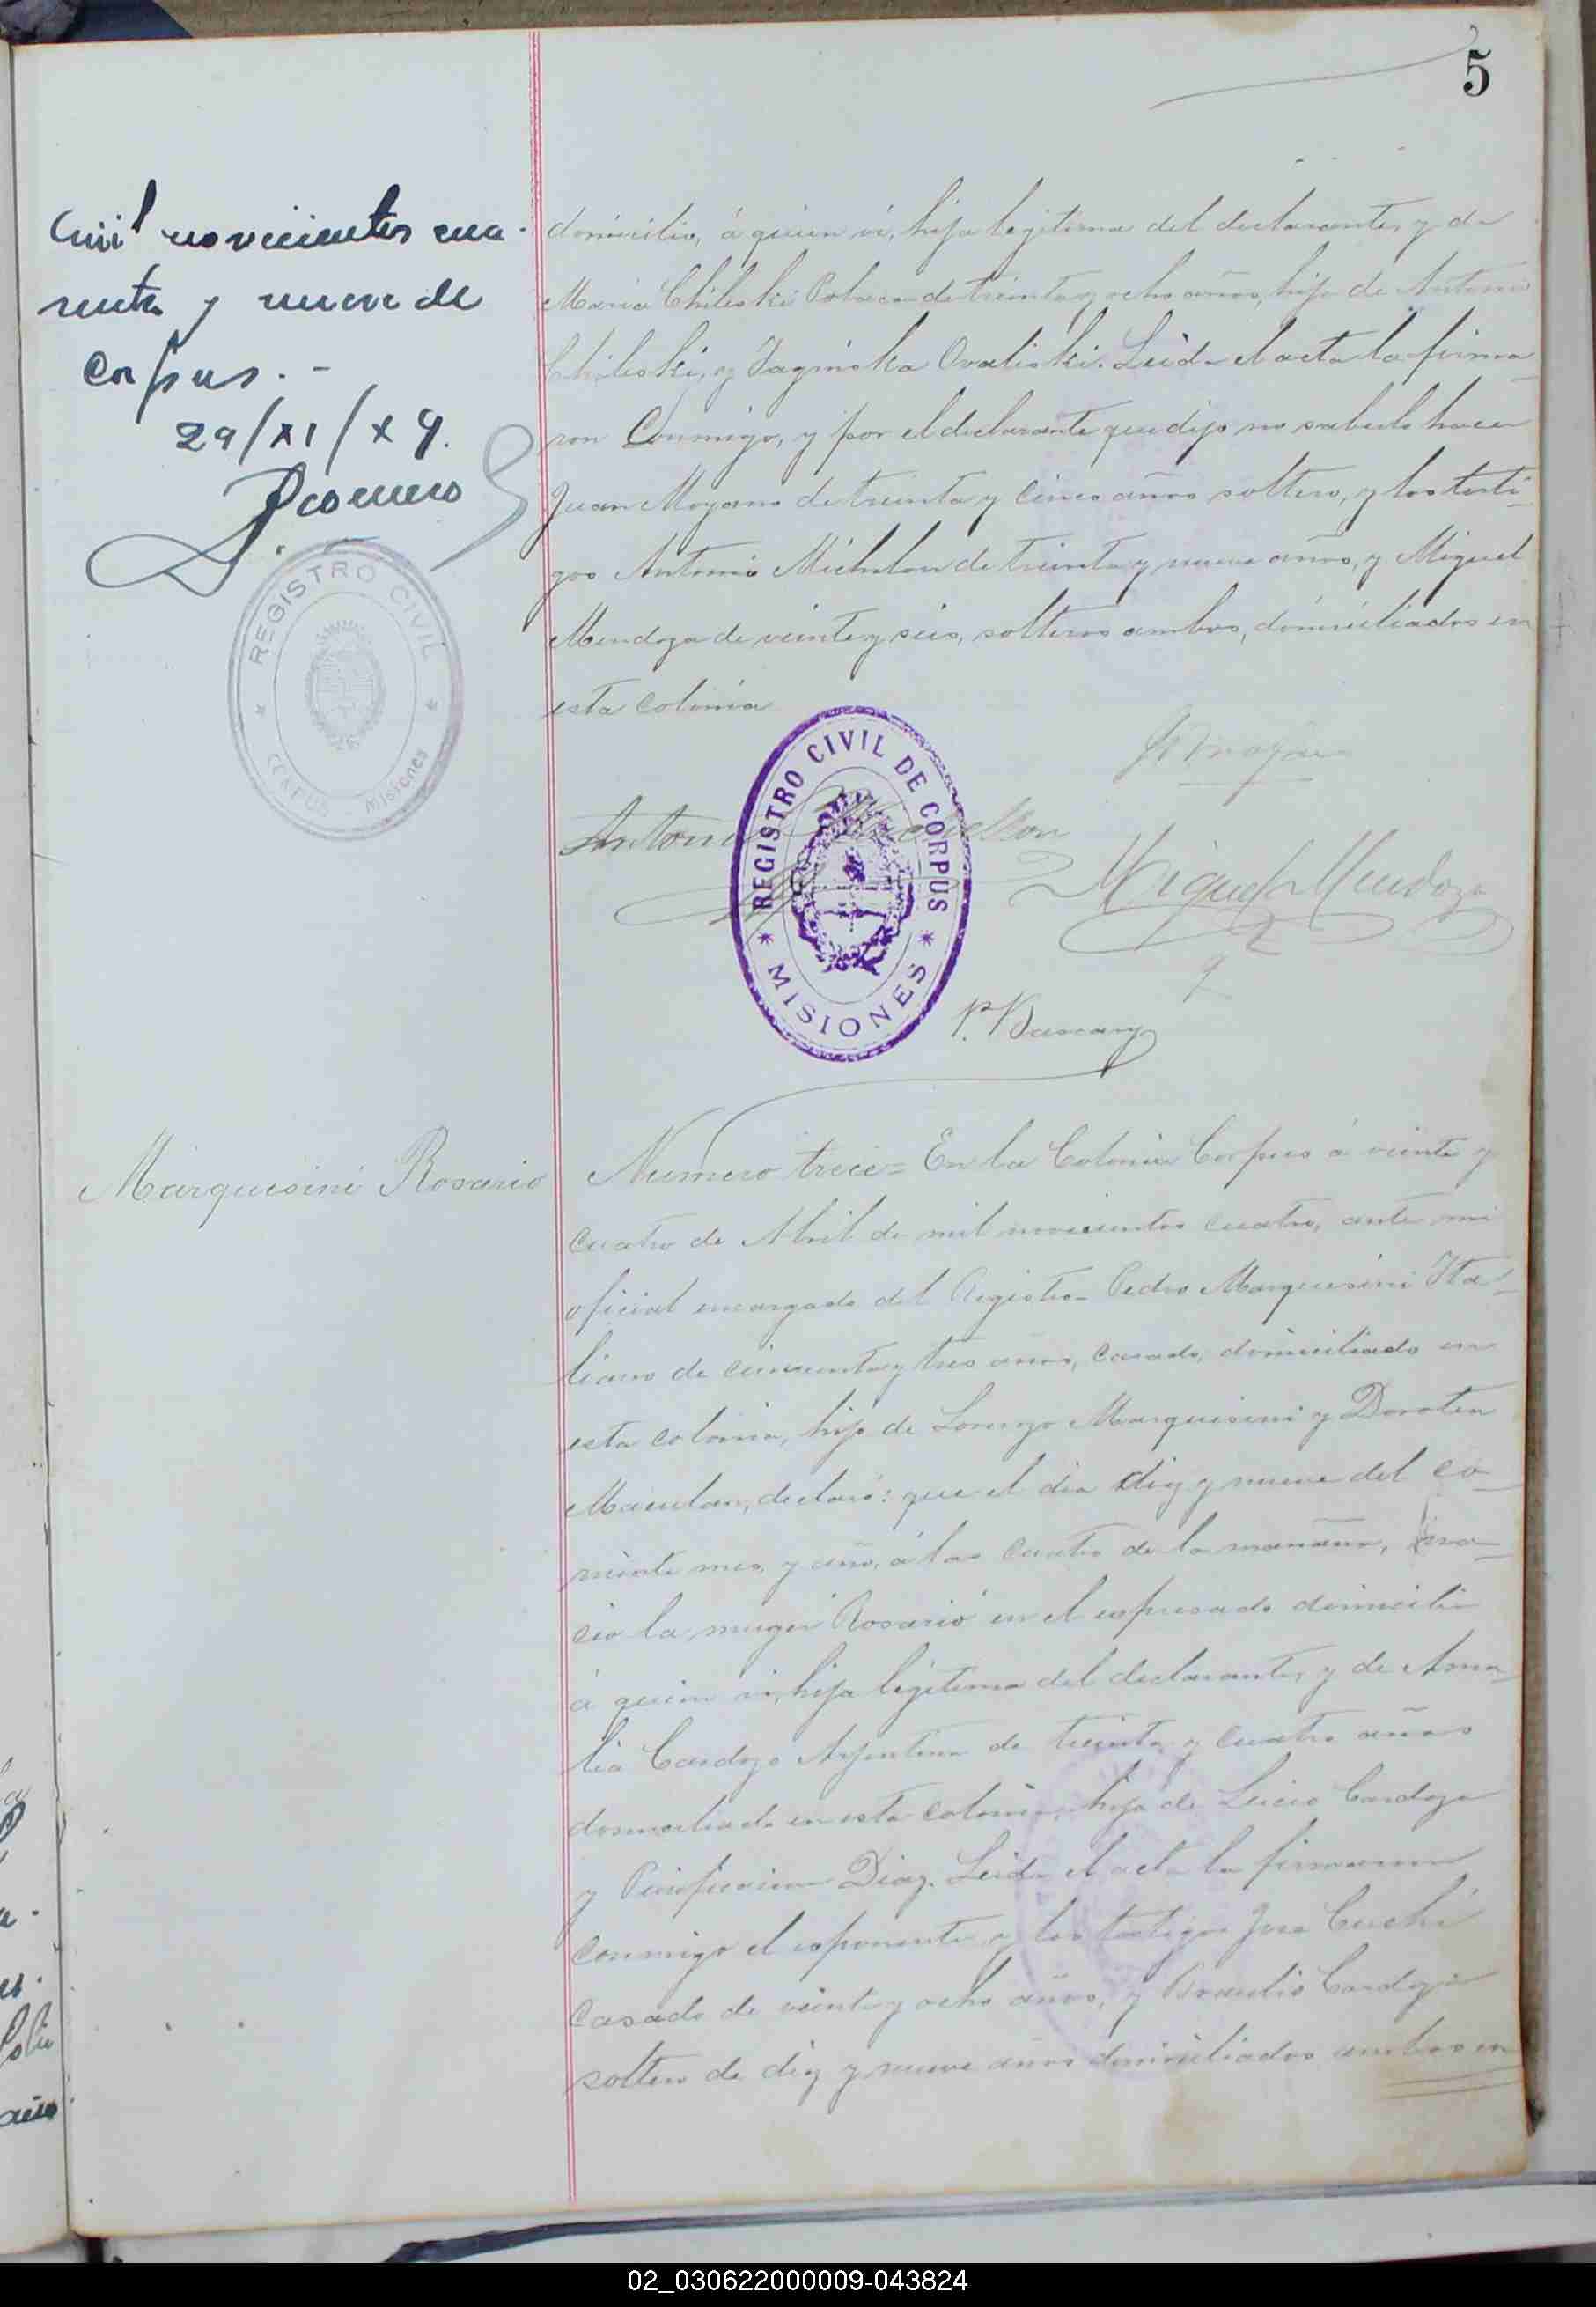 5
Civil novecientos cua-
renta y nueve de
Corpus.-
29/XI/
REGISTRO CIVIL
CORPUS Misiones
domicilio, á quien ví, hija legitima del declarante, y de
Maria Chileski Polaca de treinta y ocho años, hija de Antonio
Chileski, y Ovaliski. Leida el acta la firma-
ron Conmigo, y por el declarante que dijo no saberlo hacer
Juan Moyano de treinta y cinco años soltero, y los testi-
gos Antonio de treinta y nueve años, y Miguel
Mendoza de veinte y seis, solteros ambos, domiciliados en
esta colonia
Antonio
Miguel Mendoza
REGISTRO CIVIL DE CORPUS
MISIONES
Marquisini Rosario
Numero trece= En la Colonia Corpus á veinte y
cuatro de Abril de mil novecientos cuatro, ante mi
oficial encargado del Registro- Pedro Marquisini Ita-
liano de cincuenta y tres años, casado, domiciliado en
esta colonia, hijo de Lorenzo Marquisini y Dorotea
declaró: que el dia diez y nueve del co-
rriente mes, y año, á las cuatro de la mañana, na-
cio la muger Rosario en el espresado domicilio
á quien ví, hija legitima del declarante, y de Ama-
lia Cardozo Argentina de treinta y cuatro años
domiciliada en esta colonia, hija de Lucio Cardozo
y Purificacion Diaz. Leida el acta la firmaron
conmigo el esponente, y los testigos José
casado de veinte y ocho años, y Braulio Cardozo
soltero de diez y nueve años domiciliados ambos en
02_030622000009-043824